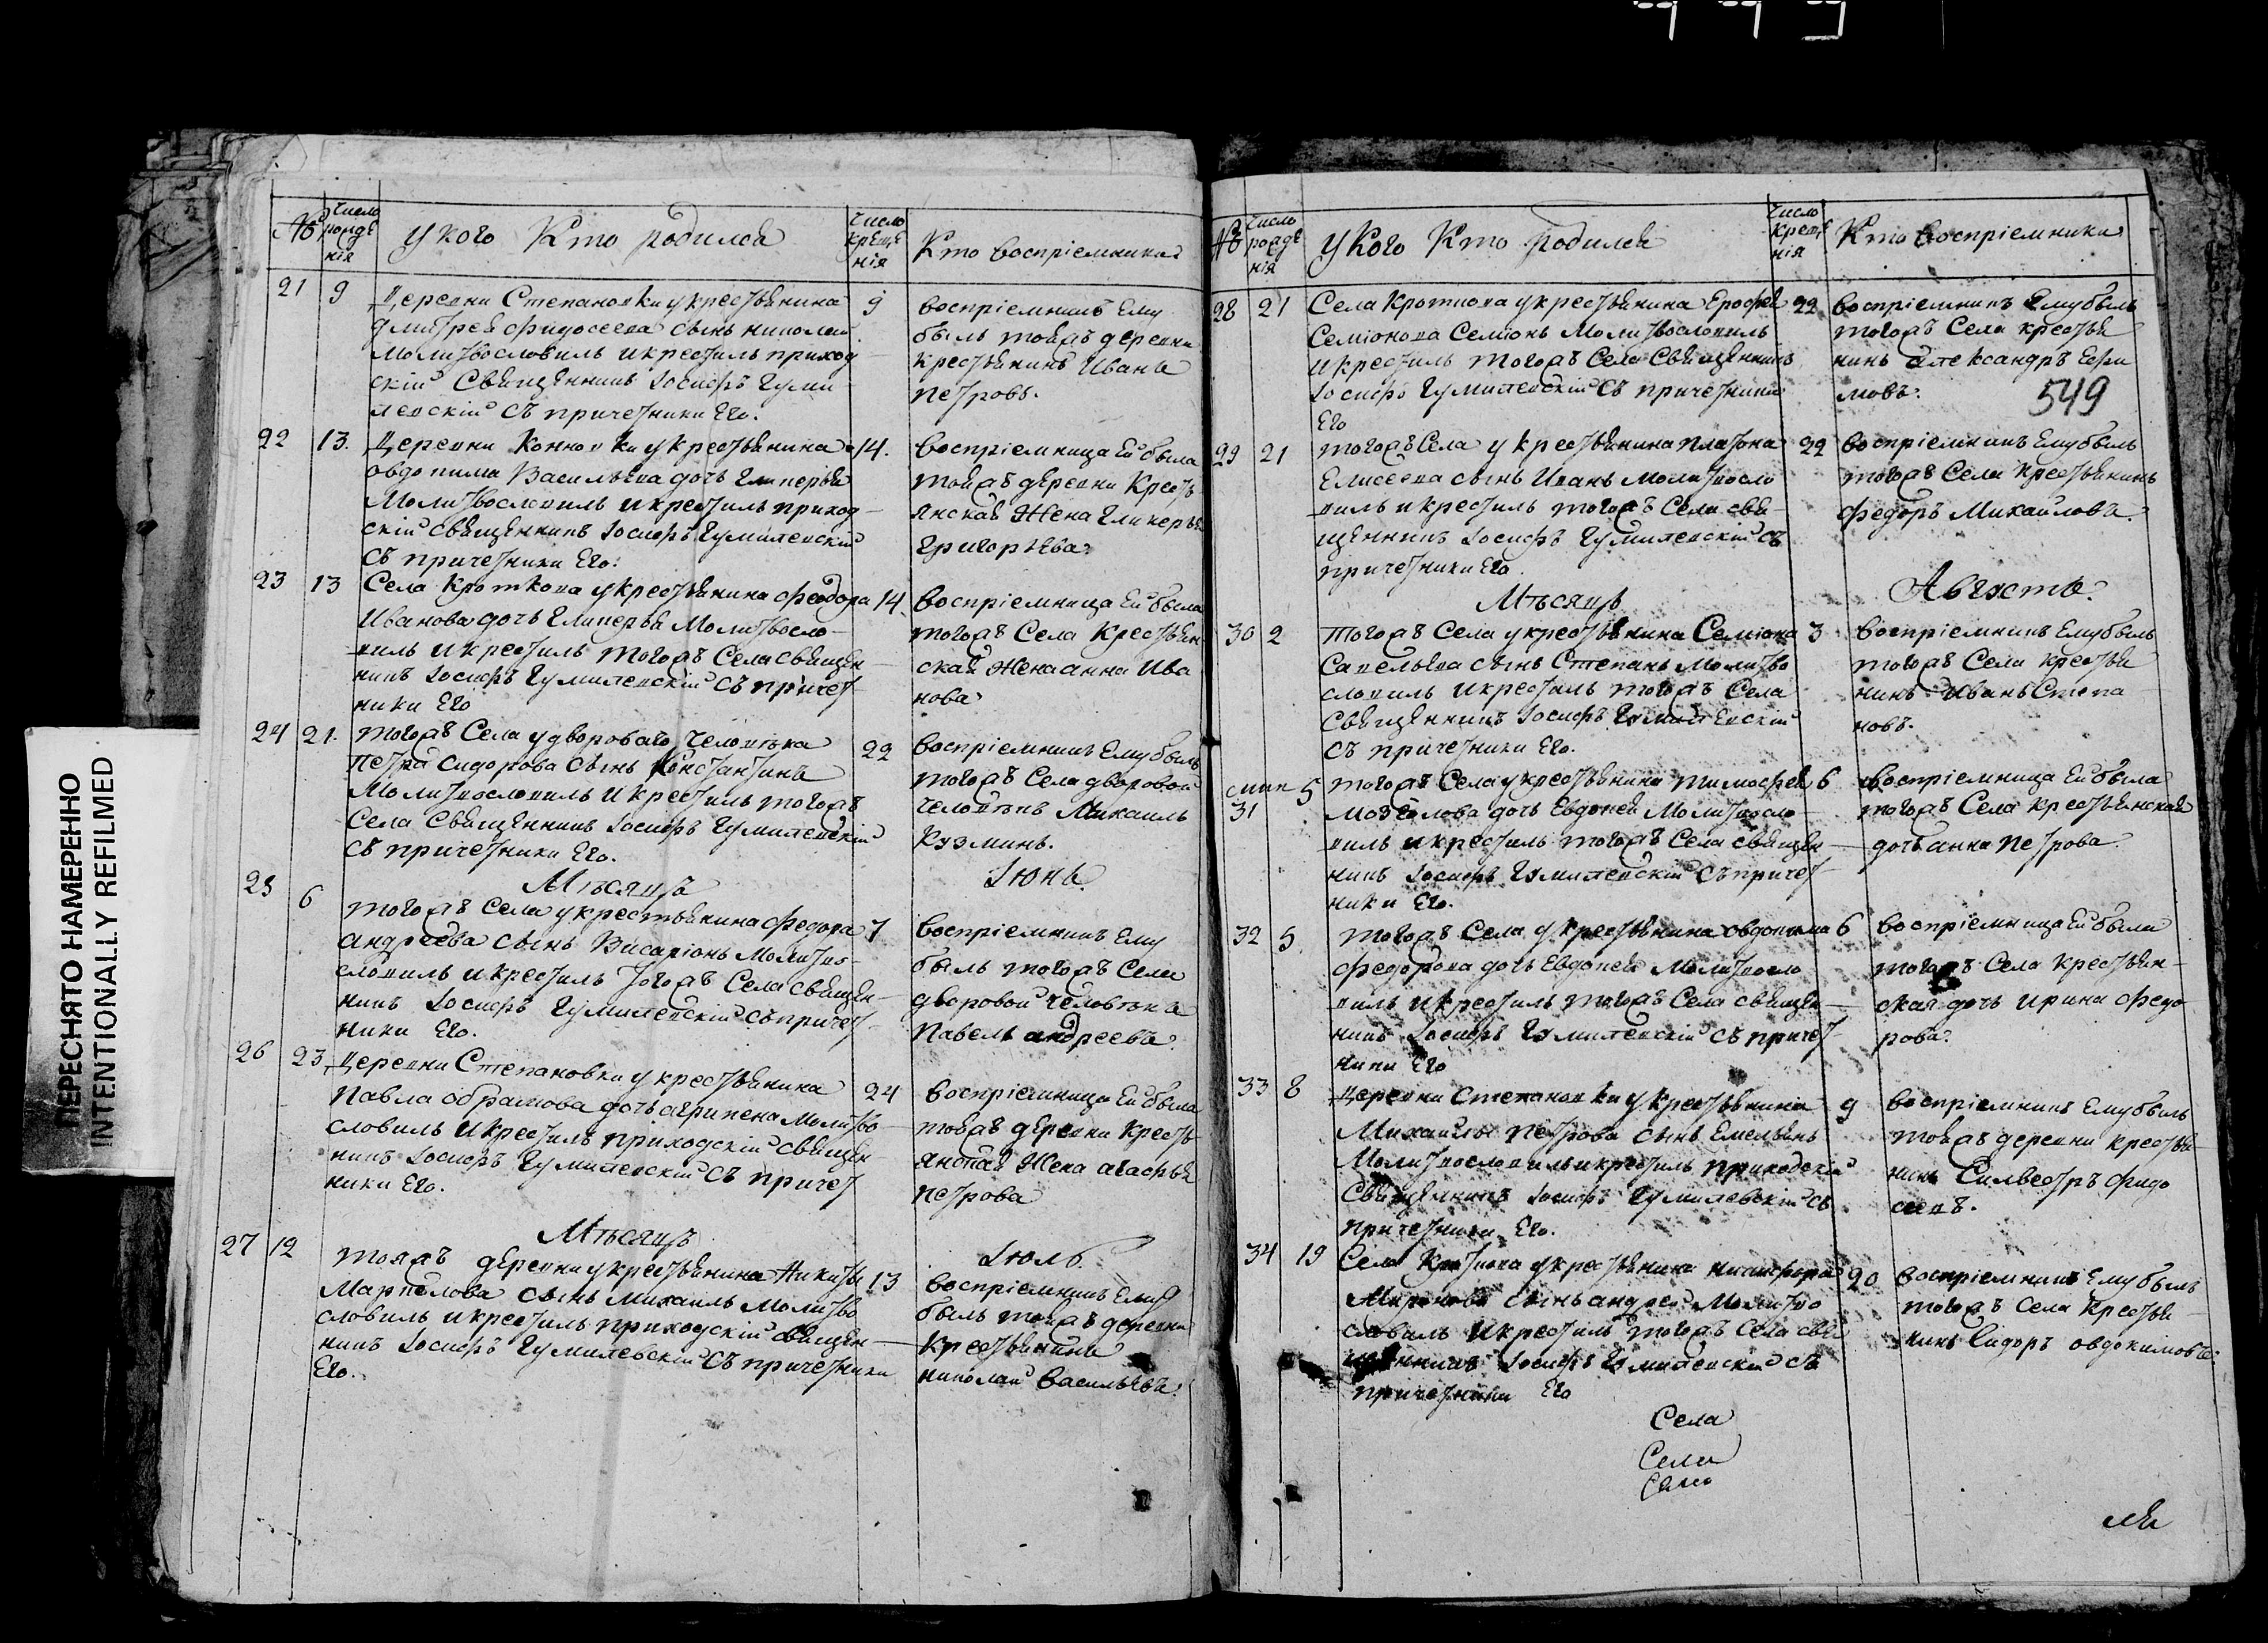 ПЕРЕСНЯТО НАМЕРЕННО
INTENTIONALLY REFILMED
№ Число рожде нія
у кого Кто родился
Число креще нія
Кто воспріемники
21 9 Деревни Степановки у крестьянина 9
Дмитрея Фидосеева сынъ николай
Молитвословилъ и крестилъ приход
скій Священникъ Іосифъ Гуми
левскій съ причетники Его.
воспріемникъ Ему
былъ тояжъ деревни
крестьянинъ Иванъ
петровъ.
22 13. Деревни Конновки у крестьянина 14.
овдокима Васильева дочь Гликерья
Молитвословилъ и крестилъ приход
скій священникъ Іосифъ Гумилевскій
съ причетники Его.
воспріемница Ей была
тояжъ деревни Кресть
янская Жена Гликерья
Григорьева
23 13 Села Кроткова у крестьянина Феодора 14.
Иванова дочь Гликерья Молитвосло
вилъ и крестилъ тогожъ Села священ
никъ Іосифъ Гумилевскій съ причет
ники Его
воспріемница Ей была
тогожъ Села Крестьян
ская Жена анна Ива
нова
24 21. тогожъ Села у двороваго Человѣка 22
петра сидорова сынъ Константинъ
Молитвословилъ и крестилъ тогожъ
Села Священникъ Іосифъ Гумилевскій
съ причетники Его.
воспріемникъ Ему былъ
тогожъ Села дворовой
человѣкъ Михаилъ
Кузминъ.
Мѣсяцъ Іюнь
25 6 тогожъ Села у крестьянина Федора 7
андреева сынъ Висаріонъ Молитво
словилъ и крестилъ тогожъ Села священ
никъ Іосифъ Гумилевскій съ причет
ники Его.
воспріемникъ Ему
былъ тогожъ Села
дворовой человѣкъ
павелъ андреевъ.
26 23 Деревни Степановки у крестьянина 24
павла обрамова дочь агрипена Молитво
словилъ и крестилъ приходскій священ
никъ Іосифъ Гумилевскій съ причет
ники Его.
воспріемница Ей была
тояжъ деревни кресть
янская Жена агафья
петрова
Мѣсяцъ Іюль
27 12 тояжъ деревни у крестьянина Никиты 13
Маркелова сынъ Михаилъ Молитво
словилъ и крестилъ приходскій священ
никъ Іосифъ Гумилевскій съ причетники
Его.
воспріемникъ Ему
былъ тояжъ деревни
крестьянинъ
николай васильевъ.
№ Число рожде нія
у кого Кто родился
Число креще нія
Кто воспріемники
28 21 Села Кроткова у крестьянина Ерофея 22
Семіонова Семіонъ Молитвословилъ
и крестилъ тогожъ Села Священникъ
Іосифъ Гумилевскій съ причетники
Его
воспріемникъ Ему былъ
тогожъ Села крестья
нинъ александръ Ефи
мовъ.
549
29 21 тогожъ Села у крестьянина платона 22
Елисеева сынъ Иванъ Молитвосло
вилъ и крестилъ тогожъ Села свя
щенникъ Іосифъ Гумилевскій съ
причетники Его
воспріемникъ Ему былъ
тогожъ Села Крестьянинъ
Федоръ Михаиловъ.
Мѣсяцъ Августъ.
30 2 тогожъ Села у крестьянина Семіона 3
савельева сынъ Степанъ Молитво
словилъ и крестилъ тогожъ Села
Священникъ Іосифъ Гумилевскій
съ причетники Его.
воспріемникъ Ему былъ
тогожъ Села крестья
нинъ Иванъ Степа
новъ.
31 5 тогожъ Села у крестьянина тимофея 6
дочь Евдокея Молитвосло
вилъ и крестилъ тогожъ Села священ
никъ Іосифъ Гумилевскій съ причет
ники Его.
воспріемница Ей была
тогожъ Села крестьянская
дочь анна петрова.
32 5 тогожъ Села у крестьянина овдокима 6
Федорова дочь Евдокея Молитвосло
вилъ и крестилъ тогожъ Села священ
никъ Іосифъ Гумилевскій съ причет
ники Его
воспріемница Ей была
тогожъ Села крестьян
ская дочь ирина Федо
рова.
33 8 Деревни Степановки у крестьянина 9
Михаилы петрова сынъ Емельянъ
Молитвословилъ и крестилъ приходскій
Священникъ Іосифъ Гумилевскій съ
причетники Его.
воспріемникъ Ему былъ
тояжъ деревни крестья
нинъ Силвестръ Фидо
сеевъ.
34 19 Села Кроткова у крестьянина никифора 20
Миронова сынъ андрей Молитво
словилъ и крестилъ тогожъ Села свя
щенникъ Іосифъ Гумилевскій съ
причетники Его
воспріемникъ Ему былъ
тогожъ Села крестья
нинъ Сидоръ овдокимовъ.
Села
Села
Село